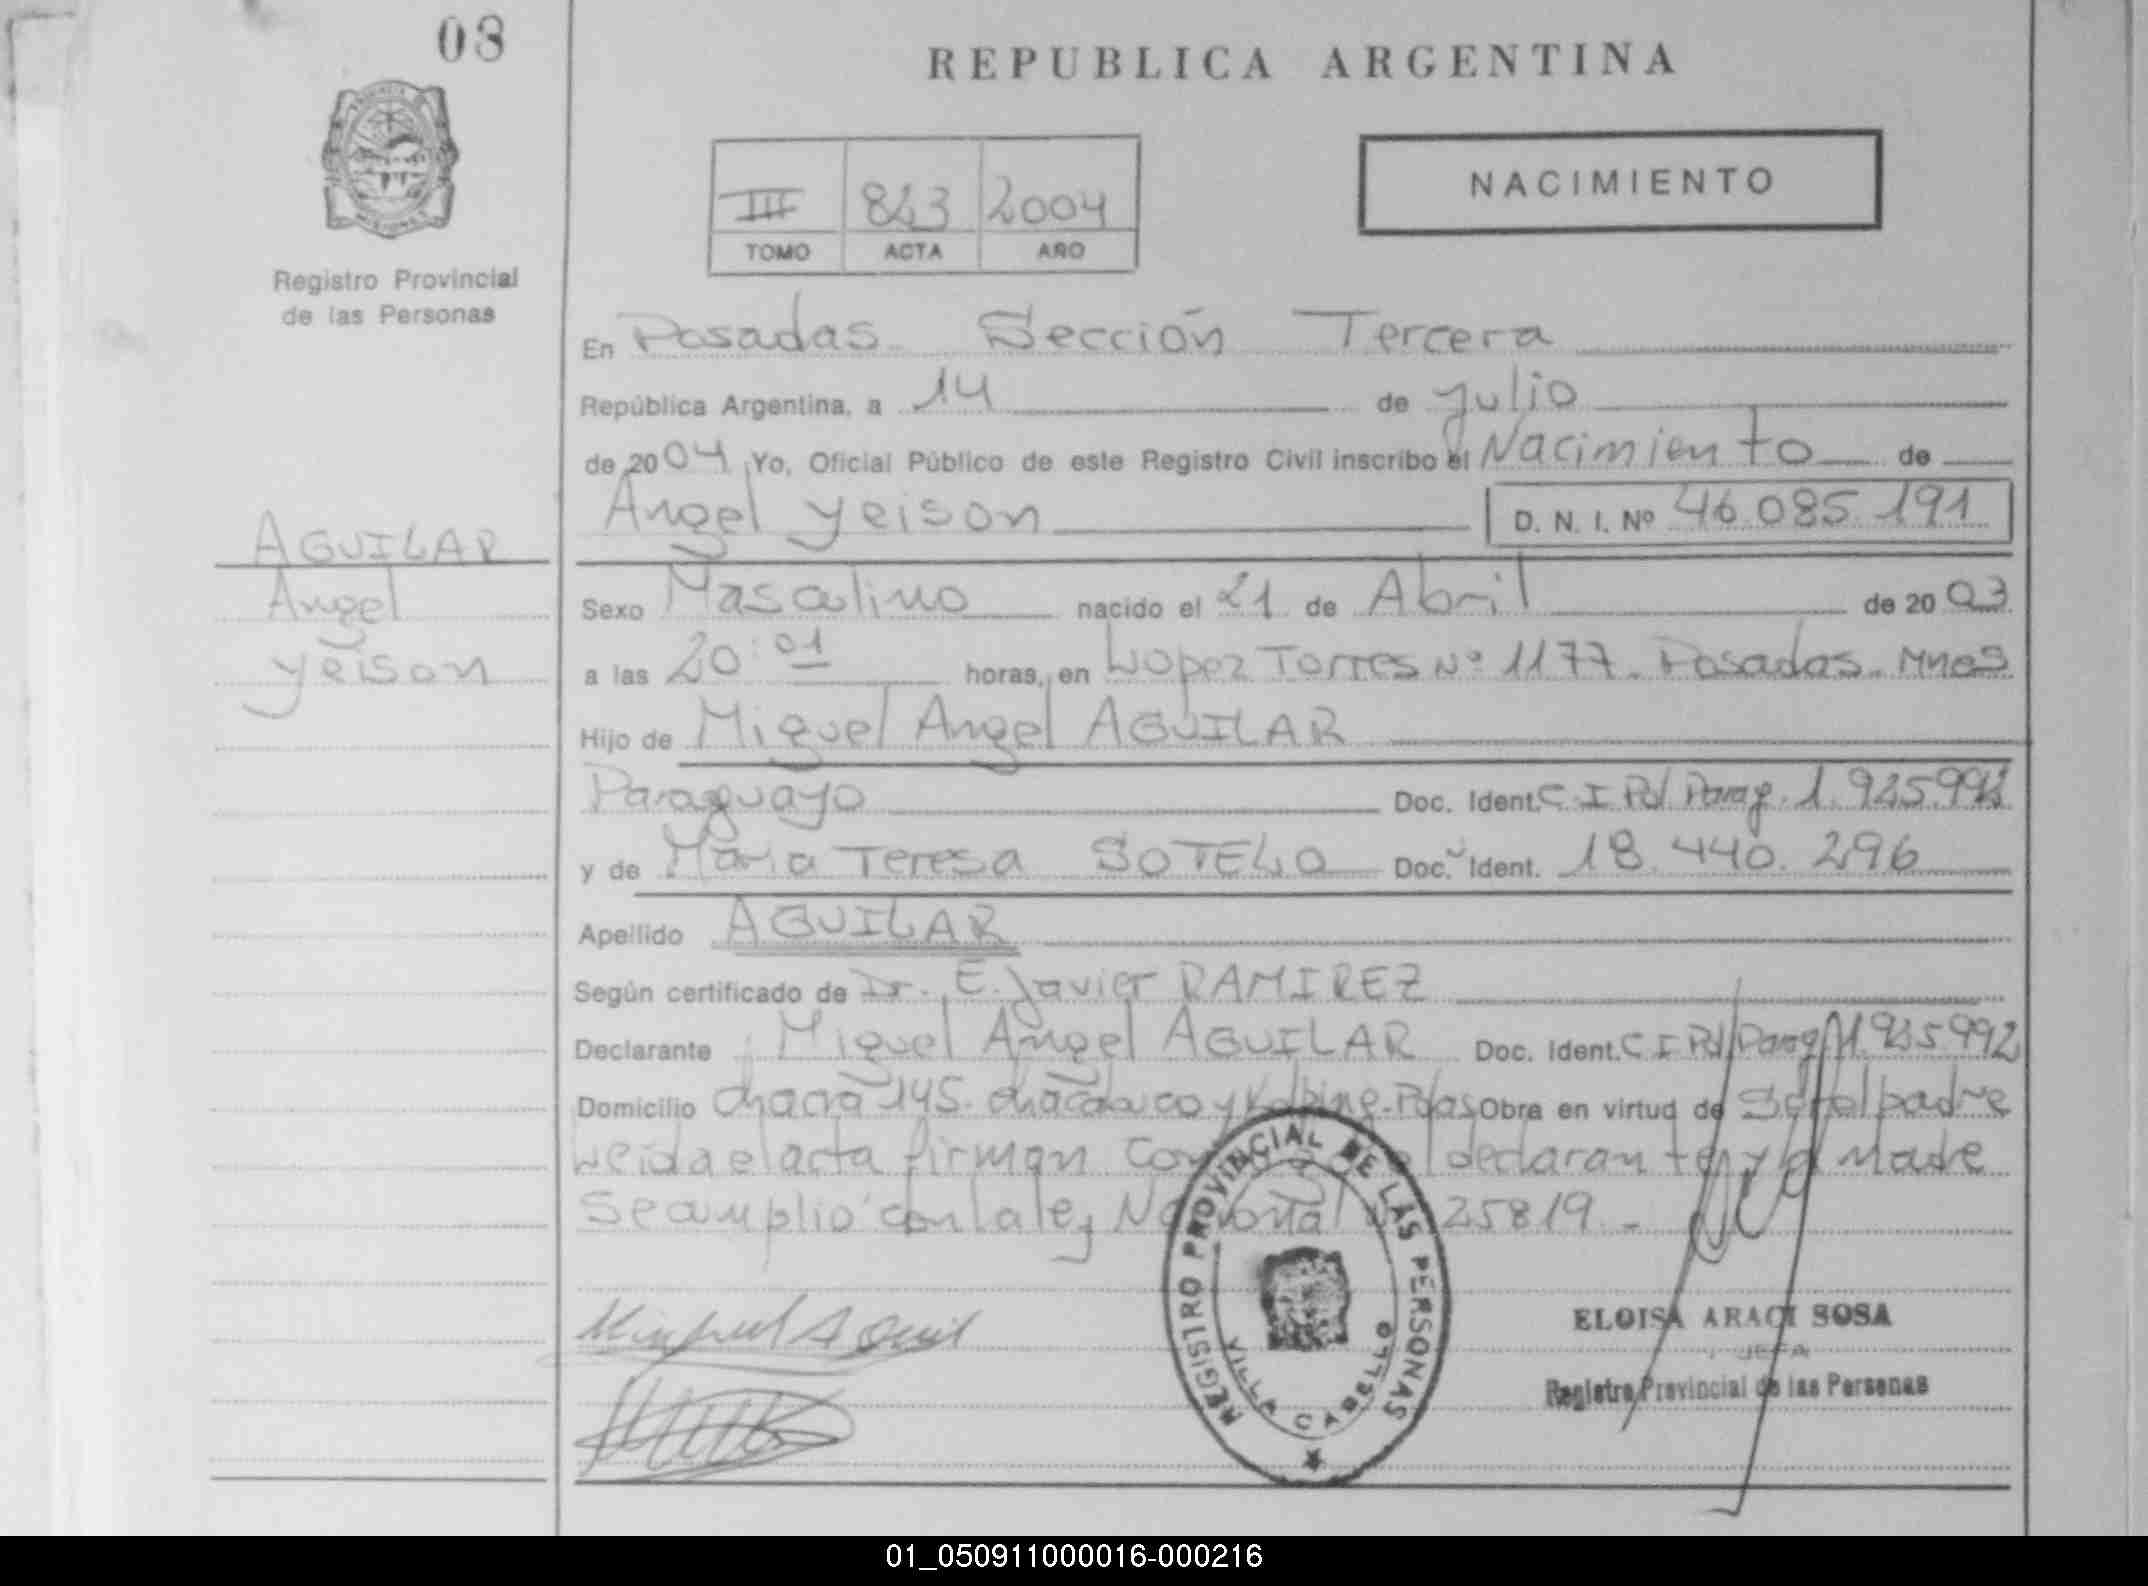 08
REPUBLICA ARGENTINA
NACIMIENTO
III 843 2004
TOMO ACTA AÑO
Registro Provincial
de las Personas
En Posadas Sección Tercera
República Argentina, a 14 de Julio
de 2004 Yo, Oficial Público de este Registro Civil inscribo el Nacimiento de
Angel Yeison D. N. I. Nº 46.085.191
AGUILAR
Angel
Yeison
Sexo Masculino nacido el 21 de Abril de 2003
a las 20:01 horas, en Lopez Torres Nº 1177. Posadas. Mnes
Hijo de Miguel Angel AGUILAR
Paraguayo Doc. Ident. C.I Pol Parag. 1.935.992
y de Maria Teresa SOTELO Doc. Ident. 18.440.296
Apellido AGUILAR
Según certificado de Dr. E. Javier RAMIREZ
Declarante Miguel Angel AGUILAR Doc. Ident. C I Pol Parag 1.935.992
Domicilio chacra 145. chacabuco y Kolping-Pdas Obra en virtud de Ser el padre
Leida el acta firman el declarante y la Madre
Se cumplio con la ley Nacional 25819.-
ELOISA ARACI SOSA
JEFA
Registro Provincial de las Personas
REGISTRO PROVINCIAL DE LAS PERSONAS
VILLA CABELLO
01_050911000016-000216